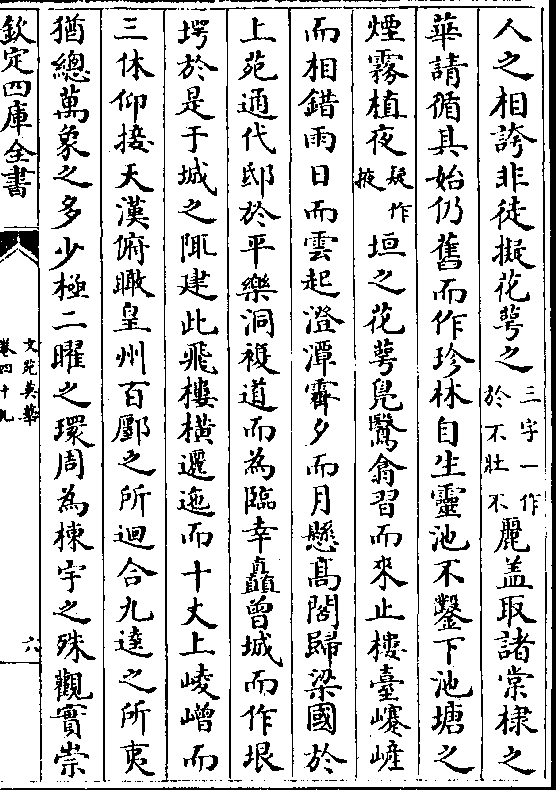 人之相誇非徒擬花萼之三字一作於不壯不麗盖取諸棠棣之
華請循其始仍舊而作珍林自生靈池不鑿下池塘之
煙霧植夜疑作掖垣之花萼鳬鷖翕習而來止樓臺㠾嵼
而相錯雨日而雲起澄潭霽夕而月懸髙閣歸梁國於
上苑通代邸於平樂洞複道而為臨幸矗曾城而作垠
堮於是于城之陬建此飛樓橫邐迤而十丈上崚嶒而
三休仰接天漢俯瞰皇州百鄽之所迴合九逵之所夷
猶總萬象之多少極二曜之環周為棟宇之殊觀實崇
欽定四庫全書
文苑英華
卷四十九
六